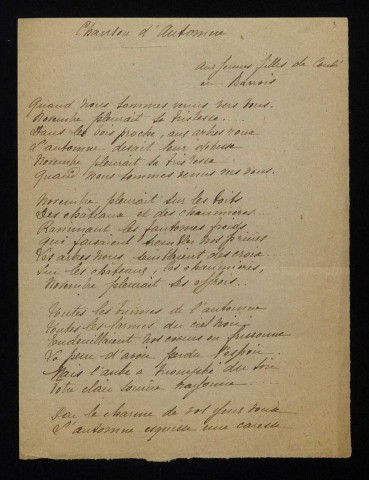 Chanson d'Automne
Aux jeunes filles de Condé
en Barrois
Quand nous sommes venus vers vous.
Novembre pleurait sa tristesse....
Dans les bois proche, aux arbres roux
L'automne disait leur détresse
Novembre pleurait sa tristesse
Quand nous sommes venus vers vous.
Novembre pleurait sur les toits
Des châteaux et des chaumières...
Ranimant les fantomes froids
Qui faisaient trembler nos prières
Vos arbres nous semblaient des croix...
Sur les chateaux, les chaumières,
Novembre pleurait ses effrois.
Toutes les brumes de l'automne
Toutes les larmes du ciel noir
Endeuillaient nos cœurs en frissonne
La peur d'avoir perdu l'espoir
Mais l'aube a triomphé du soir
Votre clair sourire rayonne....
Par le charme de vos yeux doux
L'automne esquisse une caresse